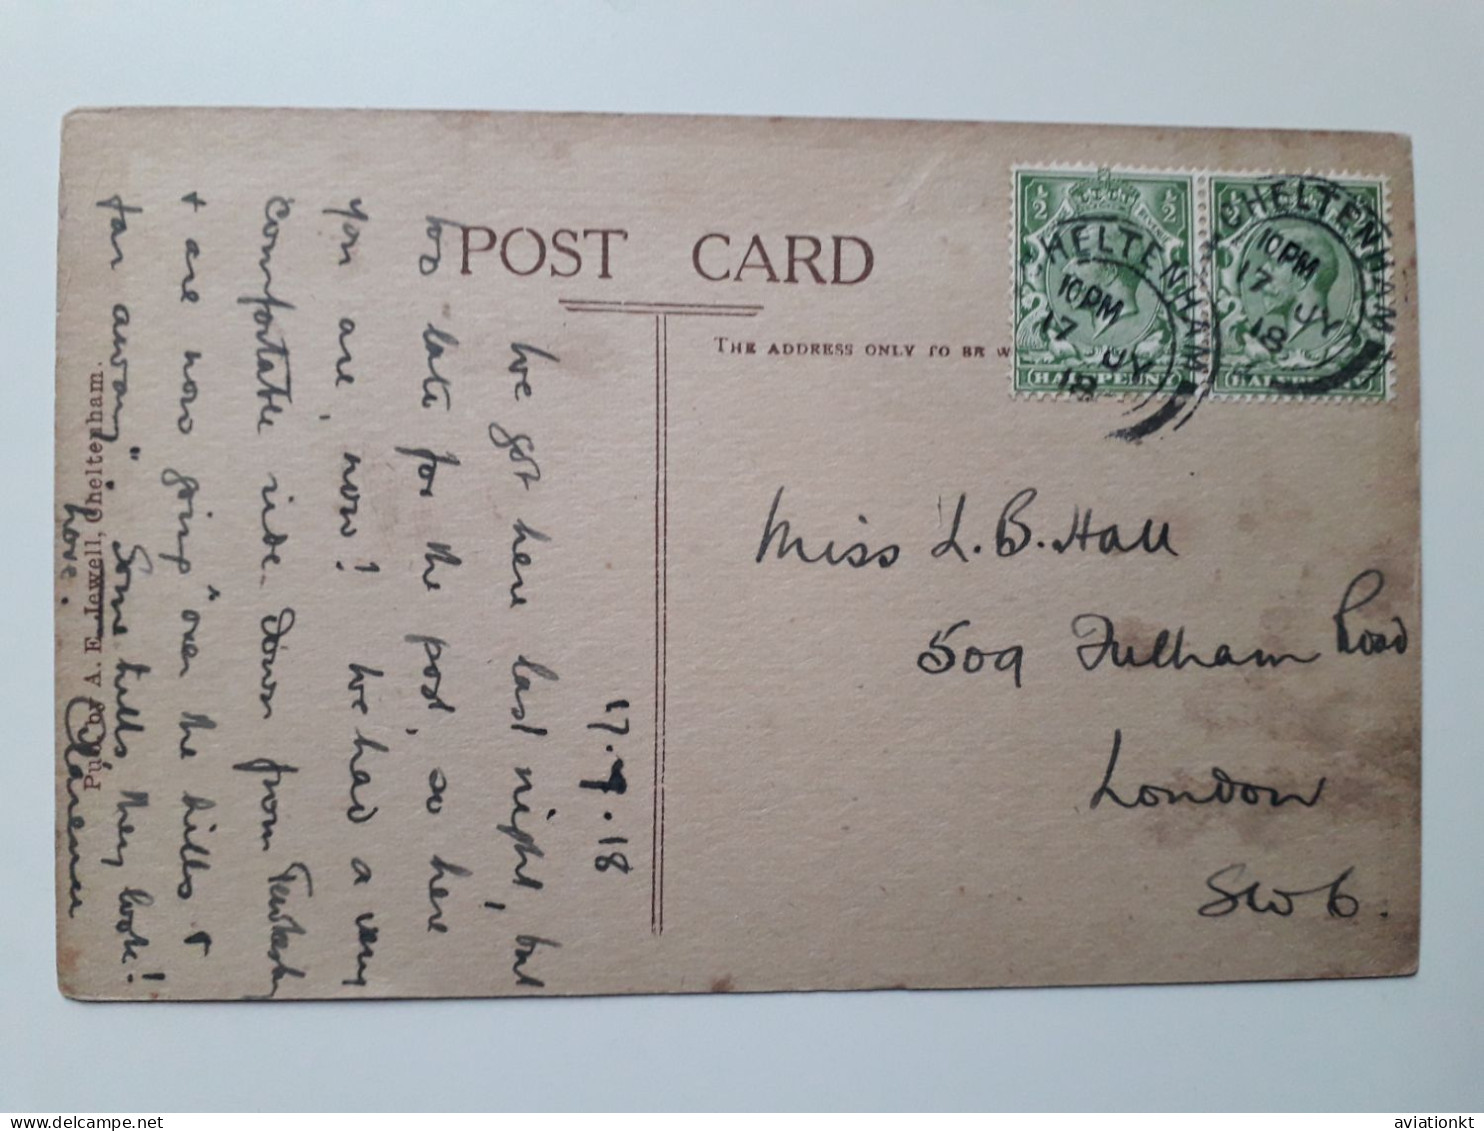 POST CARD
THE ADDRESS ONLY TO BE W
½ ½
HALFPENNY
CHELTENHAM
10 PM
17 JY
18
½
HALFPENNY
CHELTENHAM
10 PM
17 JY
18
17.7.18
We got here last night, but
too late for the post, so here
you are, now! We had a very
comfortable ride down from Tewkesbury
& are now going "over the hills &
far away". Some hills they look!
love.
Clarence
Miss L. B. Hall
509 Fulham Road
London
SW6.
Pub. by A. E. Jewell, Cheltenham.
aviationkt